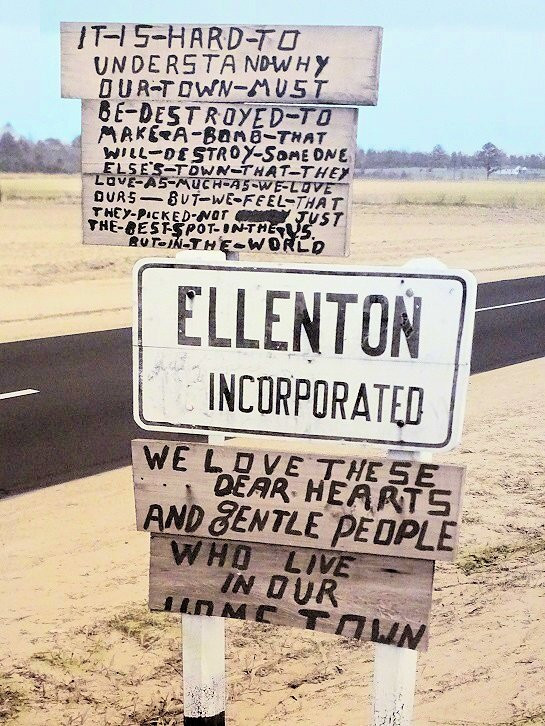 IT-IS-HARD-TO
UNDERSTANDWHY
OUR-TOWN-MUST
BE-DESTROYED-TO
MAKE-A-BOMB-THAT
WILL-DESTROY-SOMEONE
ELSE'S-TOWN-THAT-THEY
LOVE-AS-MUCH-AS-WE-LOVE
OURS—BUT-WE-FEEL-THAT
THEY-PICKED-NOT JUST
THE-BEST-SPOT-IN-THE-US
BUT-IN-THE-WORLD
ELLENTON
INCORPORATED
WE LOVE THESE
DEAR HEARTS
AND GENTLE PEOPLE
WHO LIVE
IN OUR
HOME TOWN